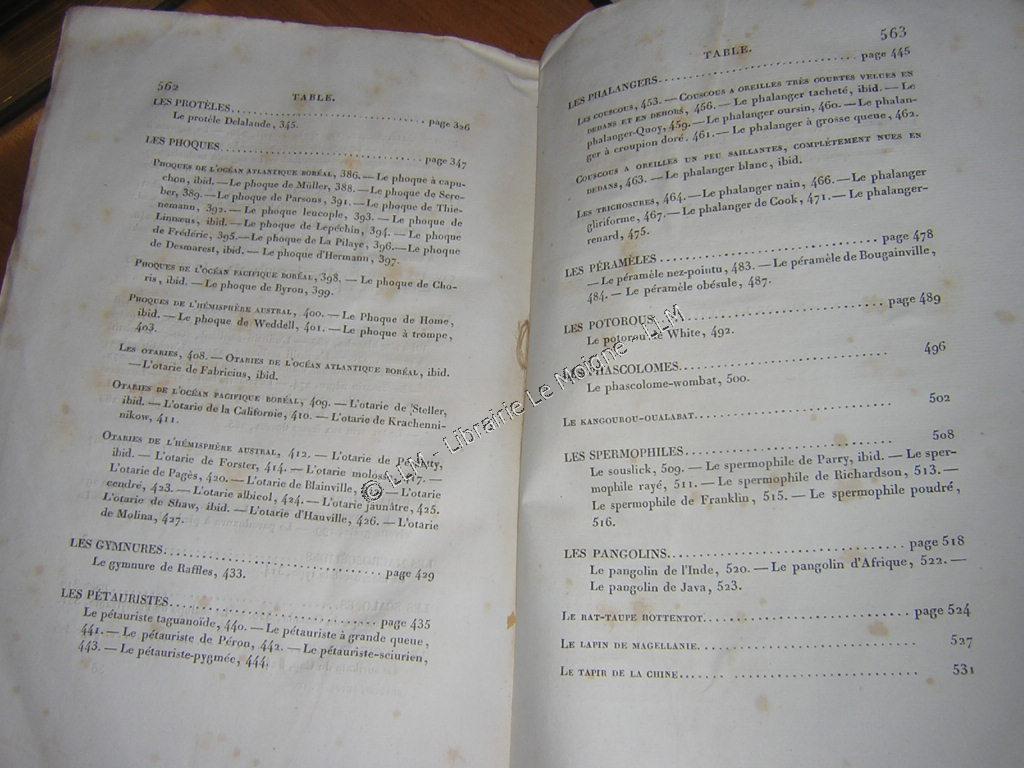 562
TABLE.
LES PROTÈLES................................ page 326
Le protèle Delalande, 345.
LES PHOQUES................................ page 347
PHOQUES DE L'OCÉAN ATLANTIQUE BORÉAL, 386. — Le phoque à capu-
chon, ibid. — Le phoque de Müller, 388. — Le phoque de Scro-
ber, 389. — Le phoque de Parsons, 391. — Le phoque de Thie-
nemann, 392. — Le phoque leucople, 393. — Le phoque de
Linnæus, ibid. — Le phoque de Lepéchin, 394. — Le phoque
de Frédéric, 395. — Le phoque de La Pilaye, 396. — Le phoque
de Desmarest, ibid. — Le phoque d'Hermann, 397.
PHOQUES DE L'OCÉAN PACIFIQUE BORÉAL, 398. — Le phoque de Cho-
ris, ibid. — Le phoque de Byron, 399.
PHOQUES DE L'HÉMISPHÈRE AUSTRAL, 400. — Le Phoque de Home,
ibid. — Le phoque de Weddell, 401. — Le phoque à trompe,
403.
LES OTARIES, 408. — OTARIES DE L'OCÉAN ATLANTIQUE BORÉAL, ibid.
— L'otarie de Fabricius, ibid.
OTARIES DE L'OCÉAN PACIFIQUE BORÉAL, 409. — L'otarie de Steller,
ibid. — L'otarie de la Californie, 410. — L'otarie de Krachenni-
nikow, 411.
OTARIES DE L'HÉMISPHÈRE AUSTRAL, 412. — L'otarie de
ibid. — L'otarie de Forster, 414. — L'otarie
L'otarie de Pagès, 420. — L'otarie de Blainville, — L'otarie
cendré, 423. — L'otarie albicol, 424. — L'otarie jaunâtre, 425.
L'otarie de Shaw, ibid. — L'otarie d'Hauville, 426. — L'otarie
de Molina, 427.
LES GYMNURES................................ page 429
Le gymnure de Raffles, 433.
LES PÉTAURISTES................................ page 435
Le pétauriste taguanoïde, 440. — Le pétauriste à grande queue,
441. — Le pétauriste de Péron, 442. — Le pétauriste-sciurien,
443. — Le pétauriste-pygmée, 444.
563
TABLE.
LES PHALANGERS................................ page 445
LES COUSCOUS, 453. — COUSCOUS A OREILLES TRÈS COURTES VELUES EN
DEDANS ET EN DEHORS, 456. — Le phalanger tacheté, ibid. — Le
phalanger-Quoy, 459. — Le phalanger oursin, 460. — Le phalan-
ger à croupion doré, 461. — Le phalanger à grosse queue, 462.
COUSCOUS A OREILLES UN PEU SAILLANTES, COMPLÈTEMENT NUES EN
DEDANS, 463. — Le phalanger blanc, ibid.
LES TRICHOSURES, 464. — Le phalanger nain, 466. — Le phalanger
gliriforme, 467. — Le phalanger de Cook, 471. — Le phalanger-
renard, 475.
LES PÉRAMÈLES................................ page 478
— Le péramèle nez-pointu, 483. — Le péramèle de Bougainville,
484. — Le péramèle obésule, 487.
LES POTOROUS................................ page 489
Le potorou de White, 492.
PHASCOLOMES................................ 496
Le phascolome-wombat, 500.
LE KANGOUROU-OUALABAT................................ 502
LES SPERMOPHILES................................ 508
Le souslick, 509. — Le spermophile de Parry, ibid. — Le sper-
mophile rayé, 511. — Le spermophile de Richardson, 513. —
Le spermophile de Franklin, 515. — Le spermophile poudré,
516.
LES PANGOLINS................................ page 518
Le pangolin de l'Inde, 520. — Le pangolin d'Afrique, 522. —
Le pangolin de Java, 523.
LE RAT-TAUPE HOTTENTOT................................ page 524
LE LAPIN DE MAGELLANIE................................ 527
LE TAPIR DE LA CHINE................................ 531
© LLM - Librairie Le Moigne - LLM